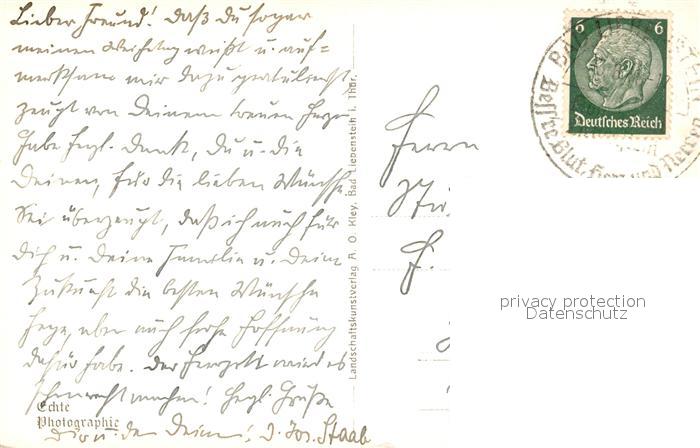 Lieber Freund! Daß Du sogar
meinen Weihetag weißt u. auf=
merksam mir dazu gratulierst,
zeugt von Deinem treuen Herz.
Habe herzl. Dank, Du u. die
Deinen, für die lieben Wünsche.
Sei überzeugt, daß ich auch für
Dich u. Deine Familie u. Deine
Zukunft die besten Wünsche
hege, aber auch frohe Hoffnung
dafür habe. Der Herrgott wird es
schon recht machen! Herzl. Grüße
Dir u. den Deinen! D. Jos. Staab
Echte
Photographie
Landschaftskunstverlag A. O. Kley, Bad Liebenstein i. Thür.
Herrn
F.
6 6
Deutsches Reich
BAD LIEBENSTEIN
Bessere Blut, Herz und Nerven
privacy protection
Datenschutz